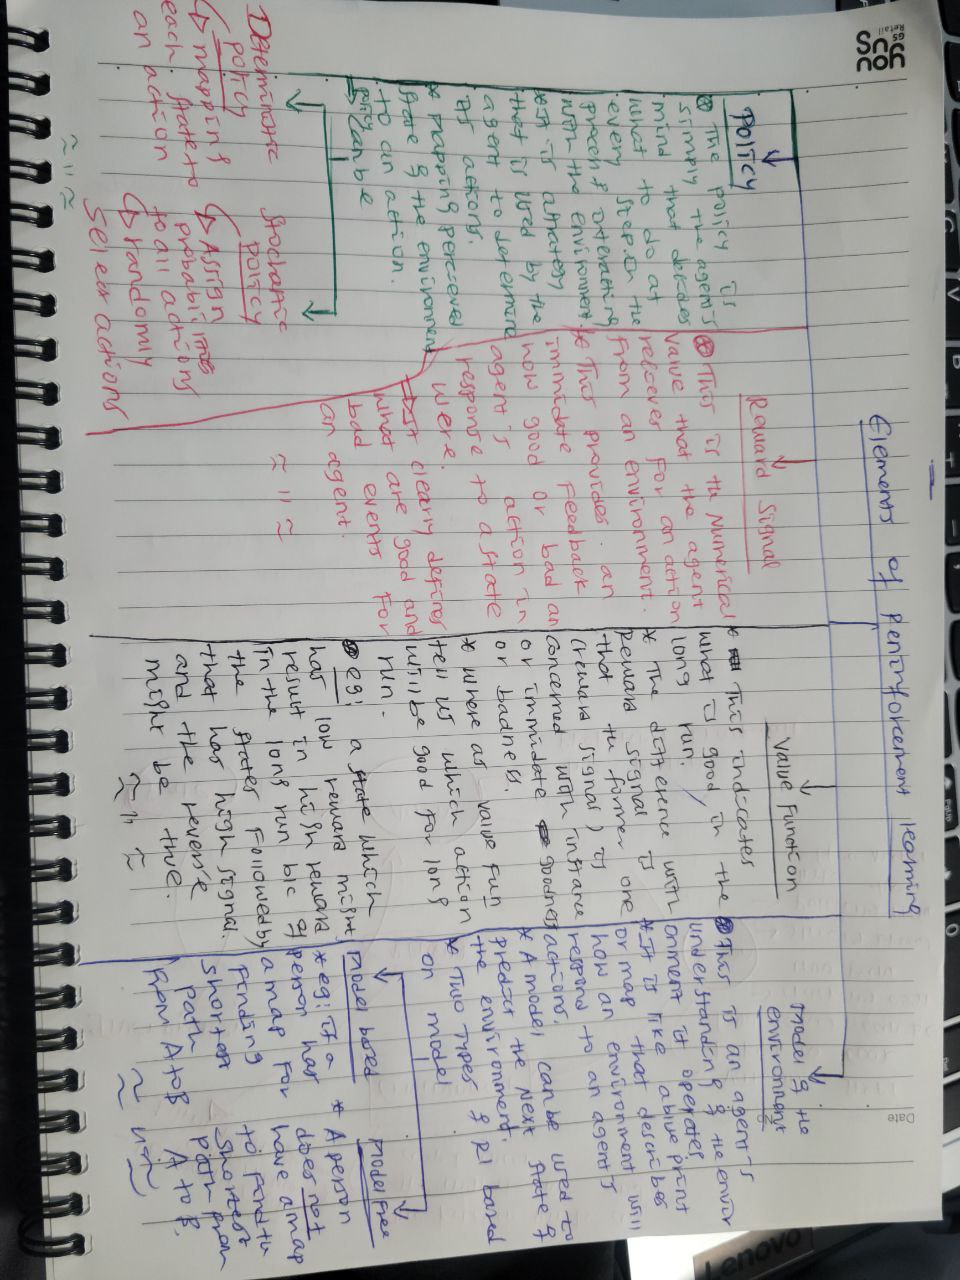 you
GS
Retail
US
Date
No
Lenovo
Elements of Reninforcement learning
Policy
The policy is
simply the agent's
mind that decides
what to do at
every step in the
process of interacting
with the environment.
* It is a strategy
that is used by the
agent to determine
its actions.
* Mapping percieved
state of the environment
to an action.
Policy
Can be
Deterministic
Policy
mapping
each state to
an action
Stochastic
Policy
Assign
probabilities
to all actions
randomly
select actions
Reward Signal
This is the Numerical
value that the agent
recieves for an action
from an environment.
* This provides an
immidate Feedback
how good or bad an
agent's action in
response to a state
were.
It clearly defines
what are good and
bad events for
an agent.
Value Function
* This indicates
what is good in the
long run.
* The difference with
Reward signal is
that the former one
(reward signal) is
concerned with instance
or immidate goodness
or badness.
* where as value Fun
tell us which action
will be good for long
run.
eg: a state which
has low reward might
result in high reward
in the long run b/c of
the states Followed by
that has high signal.
and the reverse
might be true.
Model of the
environment
This is an agent's
understanding of the envir
onment it operates
* It is like a blue print
or map that describes
how an environment will
respond to an agent's
actions.
* A model can be used to
predict the Next state of
the environment.
* Two Types of Rl based
on model
Model based
* eg: if a
person has
a map for
Finding
shortest
path
From A to B
Model Free
* A person
does not
have a map
to find the
shortest
path from
A to B.